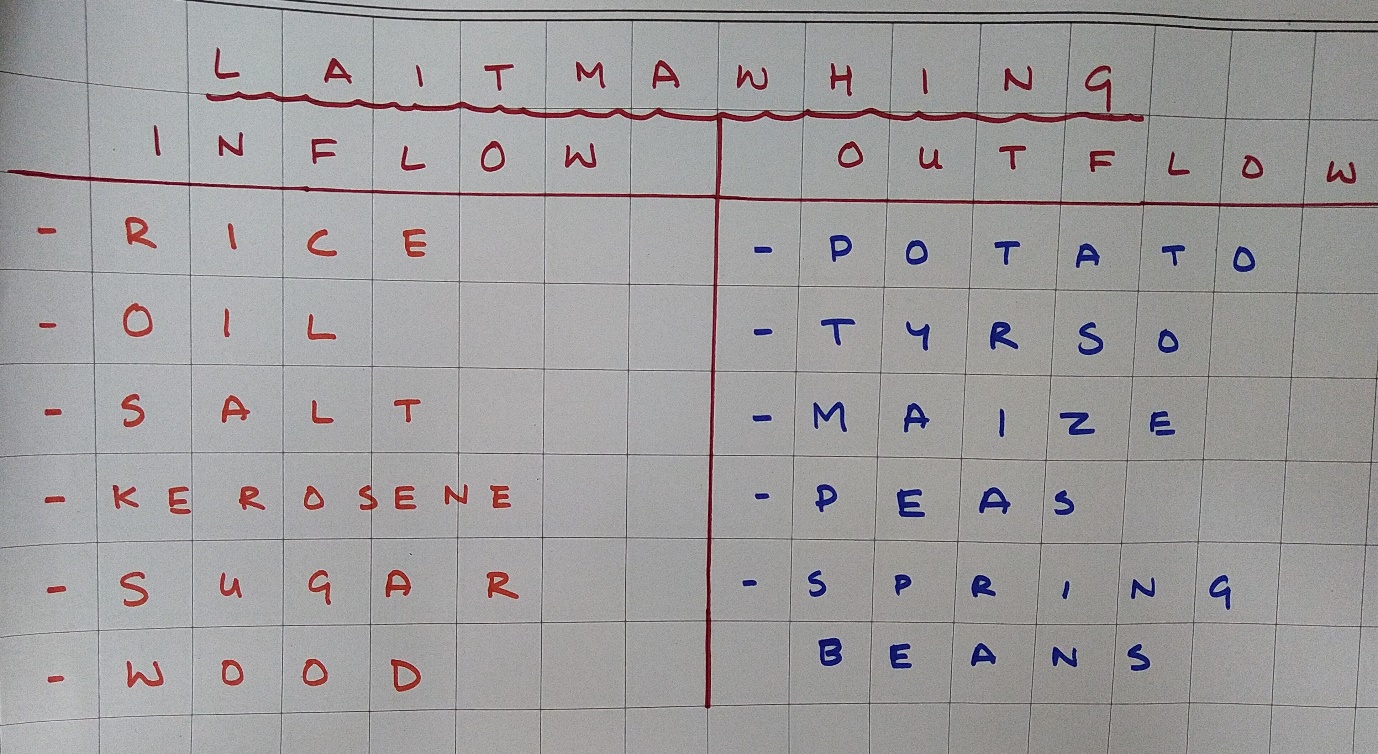 LAITMAWHING
INFLOW OUTFLOW
- RICE - POTATO
- OIL - TYRSO
- SALT - MAIZE
- KEROSENE - PEAS
- SUGAR - SPRING
- WOOD BEANS